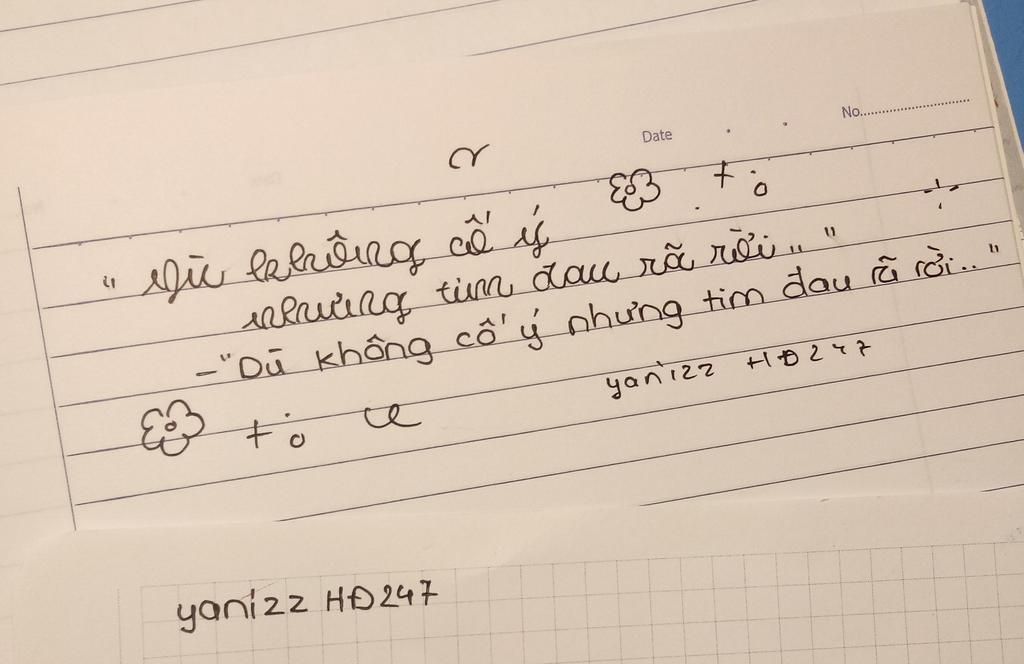 No
Date
" Dù không cố ý
nhưng tim đau rã rời.. "
- "Dù không cố ý nhưng tim đau rã rời.. "
yanizz HĐ247
yanizz HĐ247